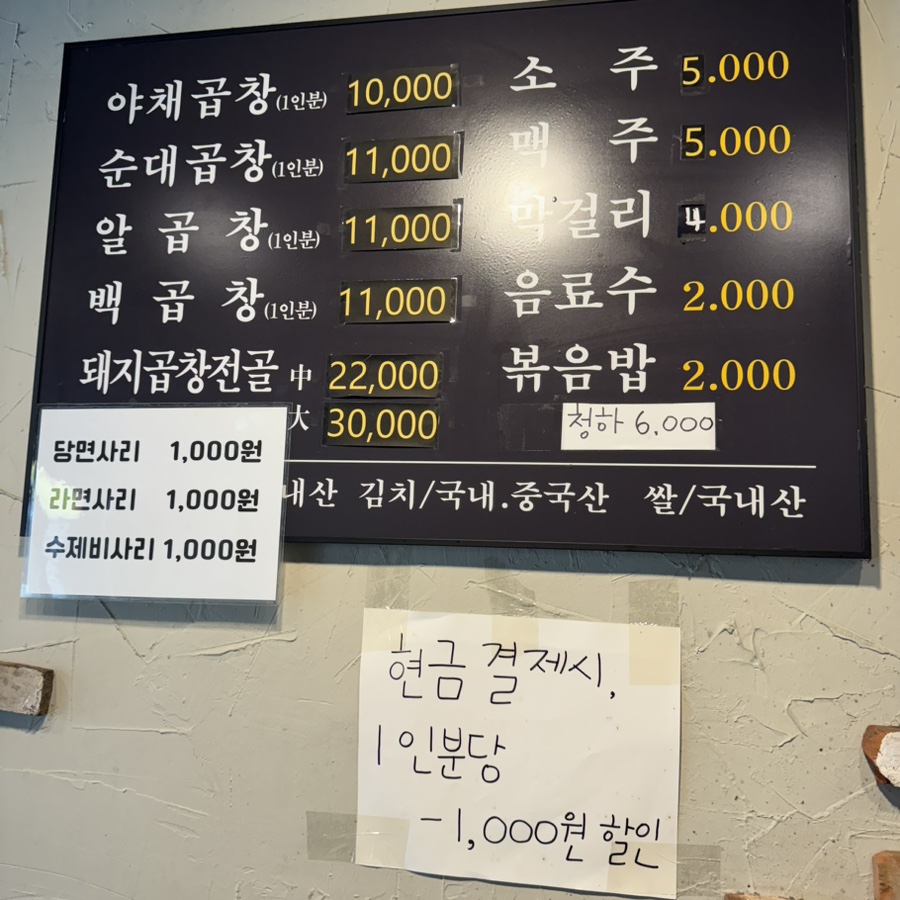 야채곱창(1인분) 10,000
순대곱창(1인분) 11,000
알 곱 창(1인분) 11,000
백 곱 창(1인분) 11,000
돼지곱창전골 中 22,000
大 30,000
소 주 5.000
맥 주 5.000
막걸리 4.000
음료수 2.000
볶음밥 2.000
청하 6,000
내산 김치/국내.중국산 쌀/국내산
당면사리 1,000원
라면사리 1,000원
수제비사리 1,000원
현금 결제시,
1인분당
-1,000원 할인